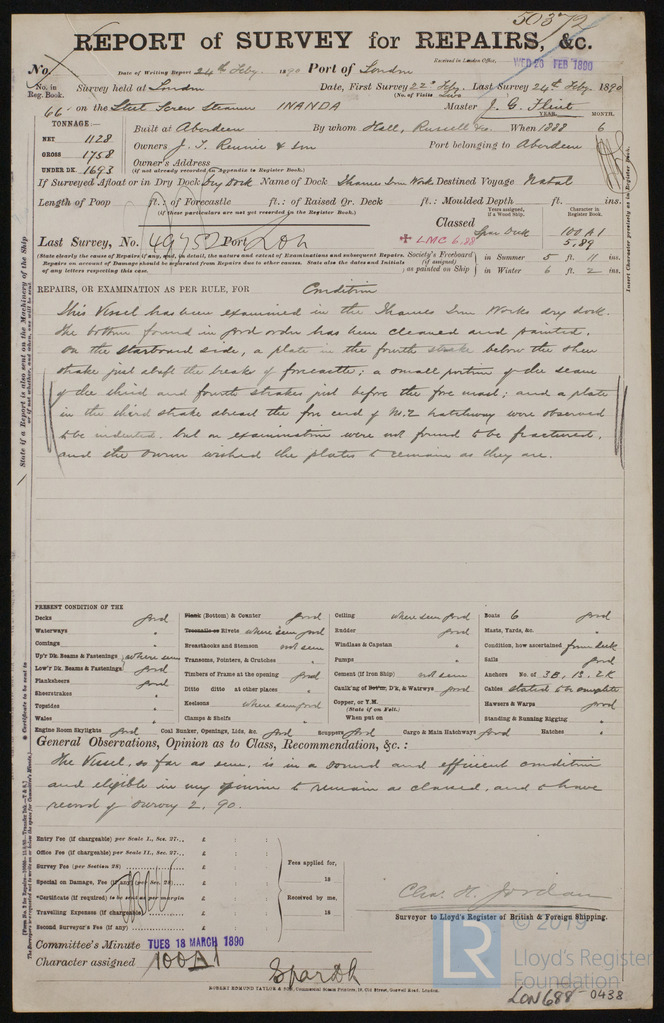 50372
REPORT of SURVEY for REPAIRS, &c.
Received in London Office, WED 26 FEB 1890
No. Date of Writing Report 24th Feby. 1890 Port of London
No. in Reg. Book. Survey held at London Date, First Survey 22nd Feby. Last Survey 24th Feby. 1890
(No. of Visits Two)
66 on the Steel Screw Steamer INANDA Master J. G. Flint
TONNAGE:— YEAR. MONTH.
NET 1128 Built at Aberdeen By whom Hall, Russell & Co. When 1888 6
GROSS 1758 Owners J. T. Rennie & Son Port belonging to Aberdeen
UNDER DK. 1693 Owner's Address
(if not already recorded in Appendix to Register Book.)
If Surveyed Afloat or in Dry Dock Dry Dock Name of Dock Thames Iron Work Destined Voyage Natal
Length of Poop ft.: of Forecastle ft.: of Raised Qr. Deck ft.: Moulded Depth ft. ins.
(if these particulars are not yet recorded in the Register Book.)
Years assigned, if a Wood Ship. Character in Register Book.
Classed Spar Deck 100A1
5,89
Last Survey, No. 49752 Port Lon + LMC 6.88
(State clearly the cause of Repairs, if any, and, in detail, the nature and extent of Examinations and subsequent Repairs. Repairs on account of Damage should be separated from Repairs due to other causes. State also the dates and Initials of any letters respecting this case.
Society's Freeboard (if assigned) as painted on Ship in Summer 5 ft. 11 ins.
in Winter 6 ft. 2 ins.
REPAIRS, OR EXAMINATION AS PER RULE, FOR Condition
This Vessel has been examined in the Thames Iron Works dry dock.
The bottom found in good order has been cleaned and painted.
On the starboard side, a plate in the fourth strake below the sheer
strake just abaft the break of forecastle; a small portion of the seam
of the third and fourth strakes just before the fore mast; and a plate
in the third strake abreast the fore end of No. 2 hatchway were observed
to be indented. but on examination were not found to be fractured.
and the owner wished the plates to remain as they are.
PRESENT CONDITION OF THE
Decks good
Waterways "
Comings "
Up'r Dk. Beams & Fastenings where seen
Low'r Dk. Beams & Fastenings good
Planksheers good
Sheerstrakes "
Topsides "
Wales "
Engine Room Skylights good
Plank (Bottom) & Counter good
Treenails or Rivets where seen good
Breasthooks and Stemson not seen
Transoms, Pointers, & Crutches "
Timbers of Frame at the opening good
Ditto ditto at other places "
Keelsons where seen good
Clamps & Shelfs "
Coal Bunker, Openings, Lids, &c. good
Ceiling where seen good
Rudder good
Windlass & Capstan "
Pumps "
Cement (if Iron Ship) not seen
Caulk'ng of Bot'm, D'k, & Watrwys good
Copper, or Y.M. (State if on Felt.)
When put on
Scuppers good Cargo & Main Hatchways good
Boats 6 good
Masts, Yards, &c. "
Condition, how ascertained from deck
Sails good
Anchors No. of 3B, 1S. 2K
Cables stated to be complete
Hawsers & Warps good
Standing & Running Rigging "
Hatches "
General Observations, Opinion as to Class, Recommendation, &c.:
The Vessel, so far as seen, is in a sound and efficient condition
and eligible in my opinion to remain as classed, and to have
record of Survey 2, 90.
Entry Fee (if chargeable) per Scale I., Sec. 27 £ : :
Office Fee (if chargeable) per Scale II., Sec. 27 £ : :
Survey Fee (per Section 28) £ : :
Special on Damage, Fee (if any) (per Sec. 28) £ : :
*Certificate (if required) to be sent as per margin £ : :
Travelling Expenses (if chargeable) £ : :
Second Surveyor's Fee (if any) £ : :
Fees applied for,
18
Received by me,
18
Chas. H. Jordan
Surveyor to Lloyd's Register of British & Foreign Shipping.
Committee's Minute TUES 18 MARCH 1890
Character assigned 100A1
Spar Dk
ROBERT EDMUND TAYLOR & SON, Commercial Steam Printers, 19, Old Street, Goswell Road, London.
Insert Character precisely as in Register Book.
State if a Report is also sent on the Machinery of the Ship
or if not, whether, and when, one will be sent.
© 2019
LR
Lloyd's Register
Foundation
LON688-0438